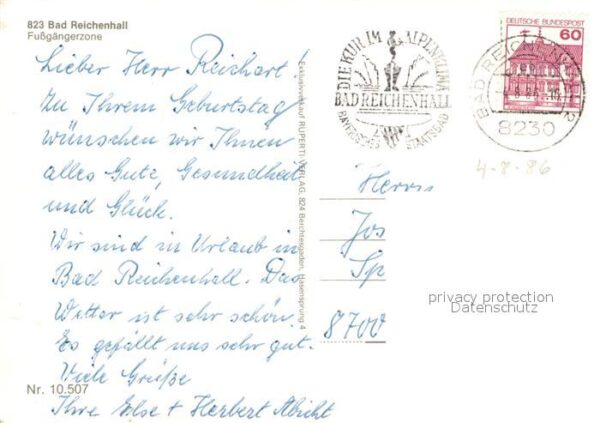 823 Bad Reichenhall
Fußgängerzone
Lieber Herr Reichart!
Zu Ihrem Geburtstag
wünschen wir Ihnen
alles Gute, Gesundheit
und Glück.
Wir sind in Urlaub in
Bad Reichenhall. Das
Wetter ist sehr schön.
Es gefällt uns sehr gut.
Viele Grüße
Ihre Else + Herbert Abicht
Nr. 10.507
Exklusivverkauf RUPERTI-VERLAG, 824 Berchtesgaden, Hasensprung 4
DIE KUR IM ALPENKLIMA
BAD REICHENHALL
BAYERISCHES STAATSBAD
DEUTSCHE BUNDESPOST
60
BAD REICHENHALL
8230
4-8-86
Herrn
Jos
Sp
8700
privacy protection
Datenschutz